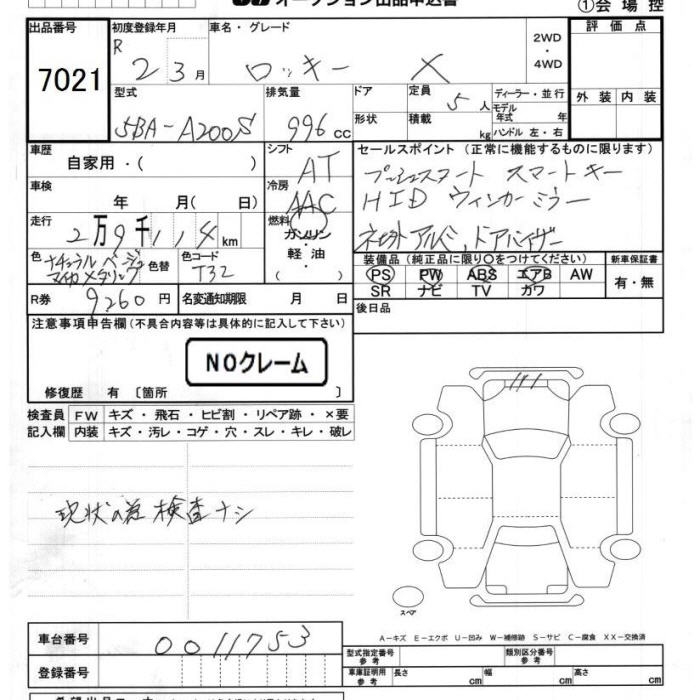 オークション出品申込書
①会場控
出品番号
7021
初度登録年月
R 2 3月
車名・グレード
ロッキー X
2WD
・
4WD
評価点
外装 内装
型式
5BA-A200S
排気量
996cc
ドア
形状
定員 5人
積載 kg
ディーラー・並行
モデル
年式 年
ハンドル 左・右
車歴
自家用・( )
シフト
AT
車検
年 月( 日)
冷房
AAC
走行
2万9千114km
燃料
ガソリン
・
軽・油
( )
セールスポイント (正常に機能するものに限ります)
プッシュスタート スマートキー
HID ウィンカーミラー
社外アルミ、ドアバイザー
色
ナチュラルベージュ
マイカメタリック
色替
色コード
T32
装備品 (純正品に限り〇をつけてください)
PS PW ABS エアB AW
SR ナビ TV カワ
新車保証書
有・無
R券
9260円
名変通知期限 月 日
後日品
注意事項申告欄 (不具合内容等は具体的に記入して下さい)
NOクレーム
修復歴 有 〔箇所 〕
検査員
記入欄
FW キズ・飛石・ヒビ割・リペア跡・×要
内装 キズ・汚レ・コゲ・穴・スレ・キレ・破レ
現状の為 検査ナシ
スペア
A-キズ E-エクボ U-凹み W-補修跡 S-サビ C-腐食 XX-交換済
車台番号
0011753
登録番号
型式指定番号
参考
類別区分番号
参考
車庫証明用
参考
長さ cm
幅 cm
高さ cm